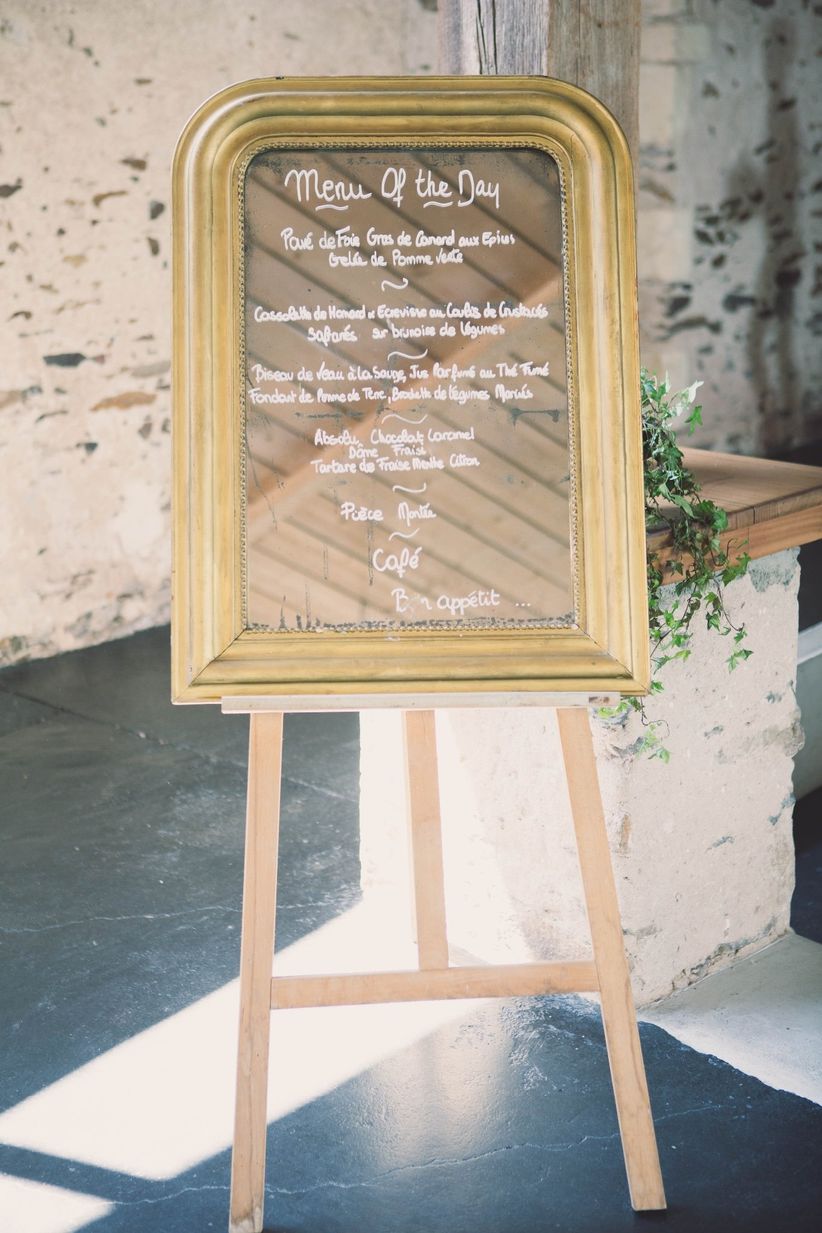 Menu Of the Day
Pavé de Foie Gras de Canard aux Epices
Gelée de Pomme verte
Cassolette de Homard et Ecrevisse au Coulis de Crustacés
Safranés sur brunoise de légumes
Biseau de Veau à La Sauge, Jus Parfumé au Thé Fumé
Fondant de Pomme de Terre, Brochette de légumes Marinés
Absolu Chocolat Caramel
Dôme Fraise
Tartare de Fraise Menthe Citron
Pièce Montée
Café
Bon appétit ...